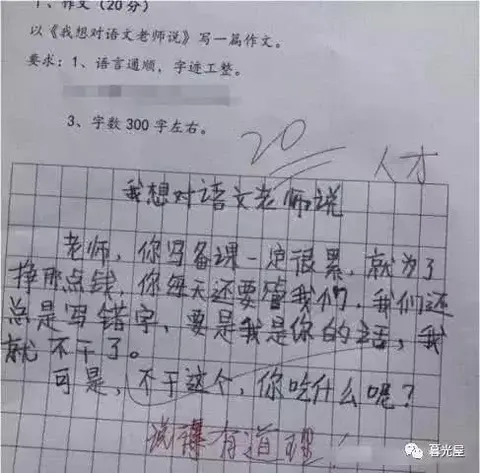 1、作文（20分）
以《我想对语文老师说》写一篇作文。
要求：1、语言通顺，字迹工整。
3、字数300字左右。
20
人才
我想对语文老师说
老师，你写备课一定很累，就为了
挣那点钱，你每天还要管我们，我们还
总是写错字，要是我是你的话，我
就不干了。
可是，不干这个，你吃什么呢？
说得有道理
暮光屋